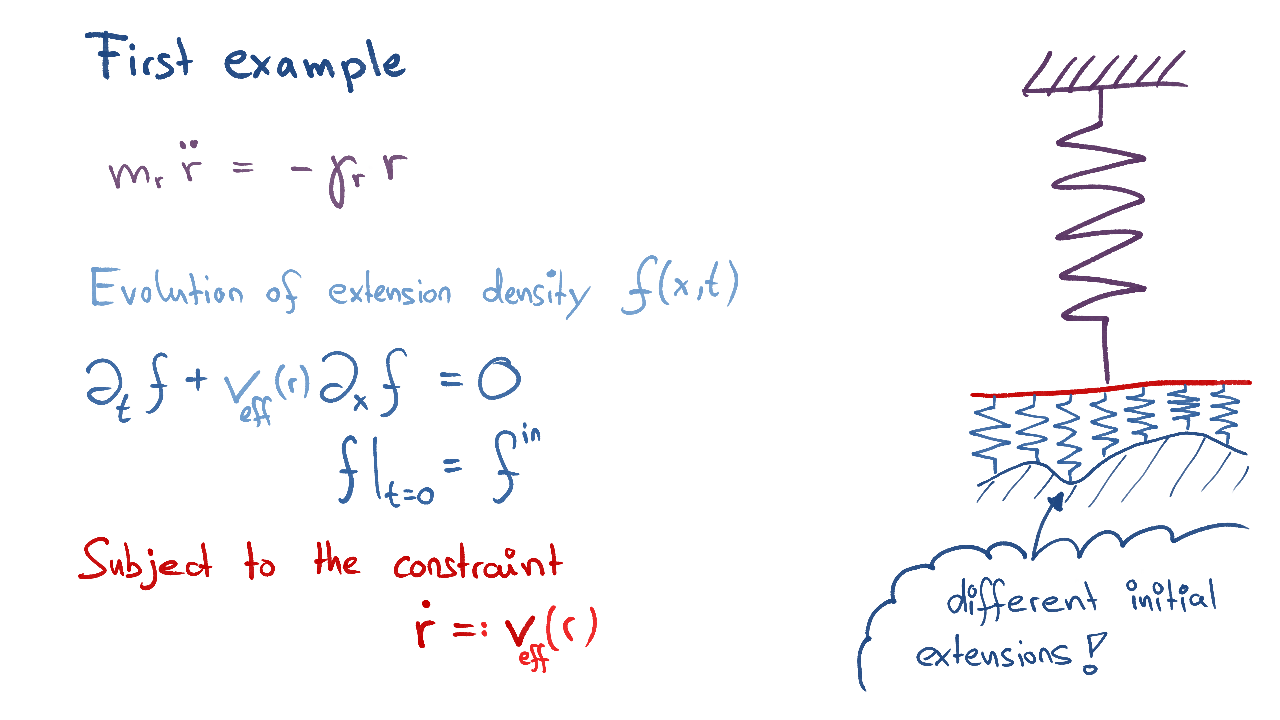 First example
mᵣ r̈ = - γᵣ r
Evolution of extension density f(x,t)
∂ₜ f + v_eff(r) ∂ₓ f = 0
f|ₜ₌₀ = fⁱⁿ
Subject to the constraint
ṙ =: v_eff(r)
different initial
extensions!